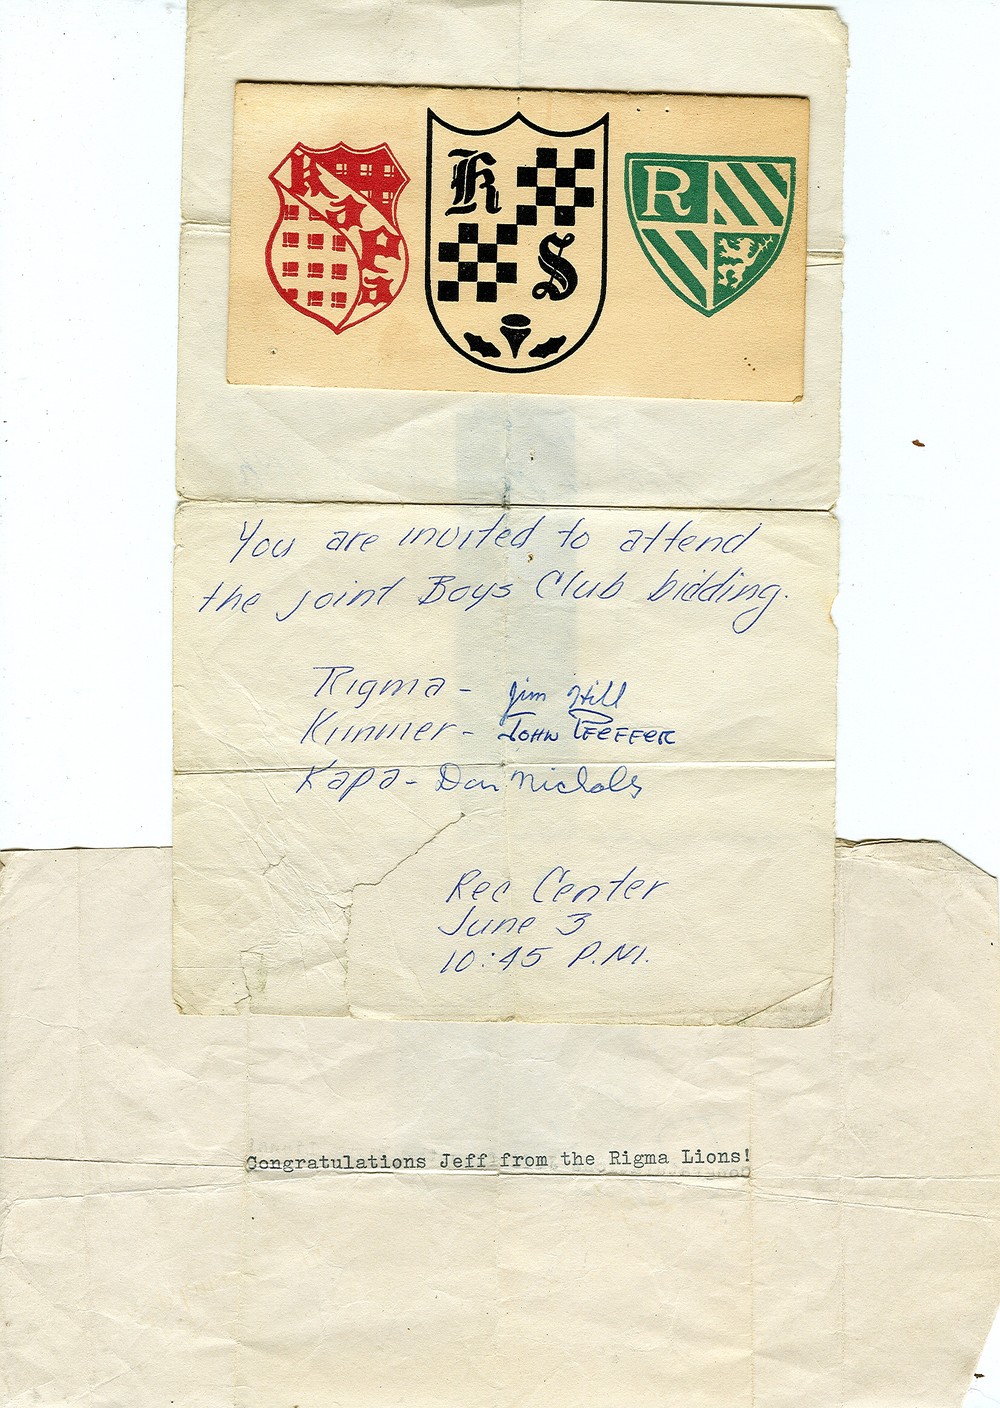 Kapa
K
S
R
You are invited to attend
the joint Boys Club bidding.
Rigma - Jim Hill
Kimmer - John Pfeffer
Kapa - Dan Nichols
Rec Center
June 3
10:45 P.M.
Congratulations Jeff from the Rigma Lions!